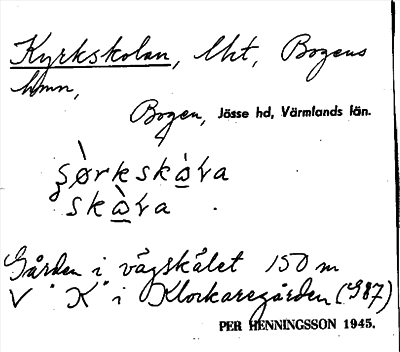 Kyrkskolan, lht, Bogens
hmn,
Bogen, Jösse hd, Värmlands län.
skàva
Gården i vägskälet 150 m
V "K" i Klockaregården (987)
PER HENNINGSSON 1945.